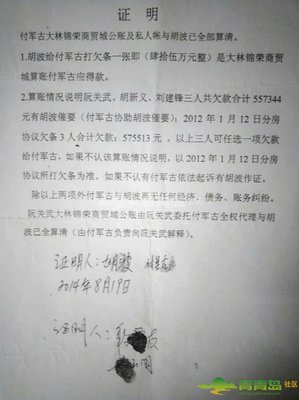 证 明
付军古大林锦荣商贸城公账及私人帐与胡波已全部算清。
1.胡波给付军古打欠条一张即（肆拾伍万元整）是大林锦荣商贸
城算账付军古应得款。
2.算账情况说明阮关武、胡新义、刘建锋三人共欠款合计 557344
元有胡波催要（付军古协助胡波催要）；2012 年 1 月 12 日分房
协议欠条 3 人合计欠款：575513 元。以上三人可任选一项欠款
给付军古。如果不认该算账情况说明，以 2012 年 1 月 12 日分房
协议所打欠条为准。如有不认付军古依法起诉有胡波作证。
除以上两项外付军古与胡波再无任何经济、债务、账务纠纷。
阮关武大林锦荣商贸城公账由阮关武委托付军古全权代理与胡
波已全算清（由付军古负责向阮关武解释）。
证明人：胡波
2014年8月19日
证明人：
青青岛社区